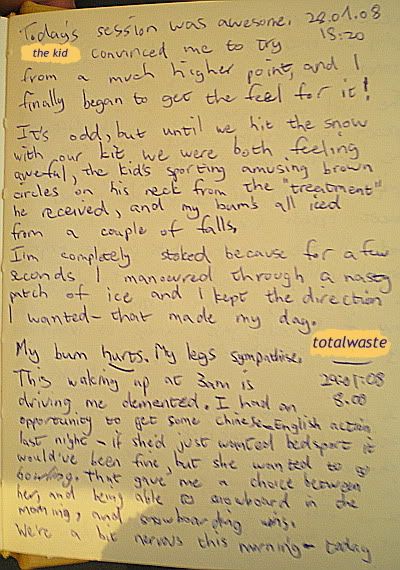 Today's session was awesome. 28.01.08
18:20
the kid convinced me to try
from a much higher point, and I
finally began to get the feel for it!
It's odd, but until we hit the snow
with our kit we were both feeling
aweful, the kid's sporting amusing brown
circles on his neck from the "treatment"
he received, and my bum's all iced
from a couple of falls,
I'm completely stoked because for a few
seconds I manouvred through a nasty
patch of ice and I kept the direction
I wanted - that made my day.
totalwaste
My bum hurts. My legs sympathise.
This waking up at 3am is 29.01.08
driving me demented. I had an 8.00
opportunity to get some chinese-English action
last night - if she'd just wanted bedsport it
would've been fine, but she wanted to go
bowling. That gave me a choice between
her, and being able to snowboard in the
morning, and snowboarding wins.
We're a bit nervous this morning - today